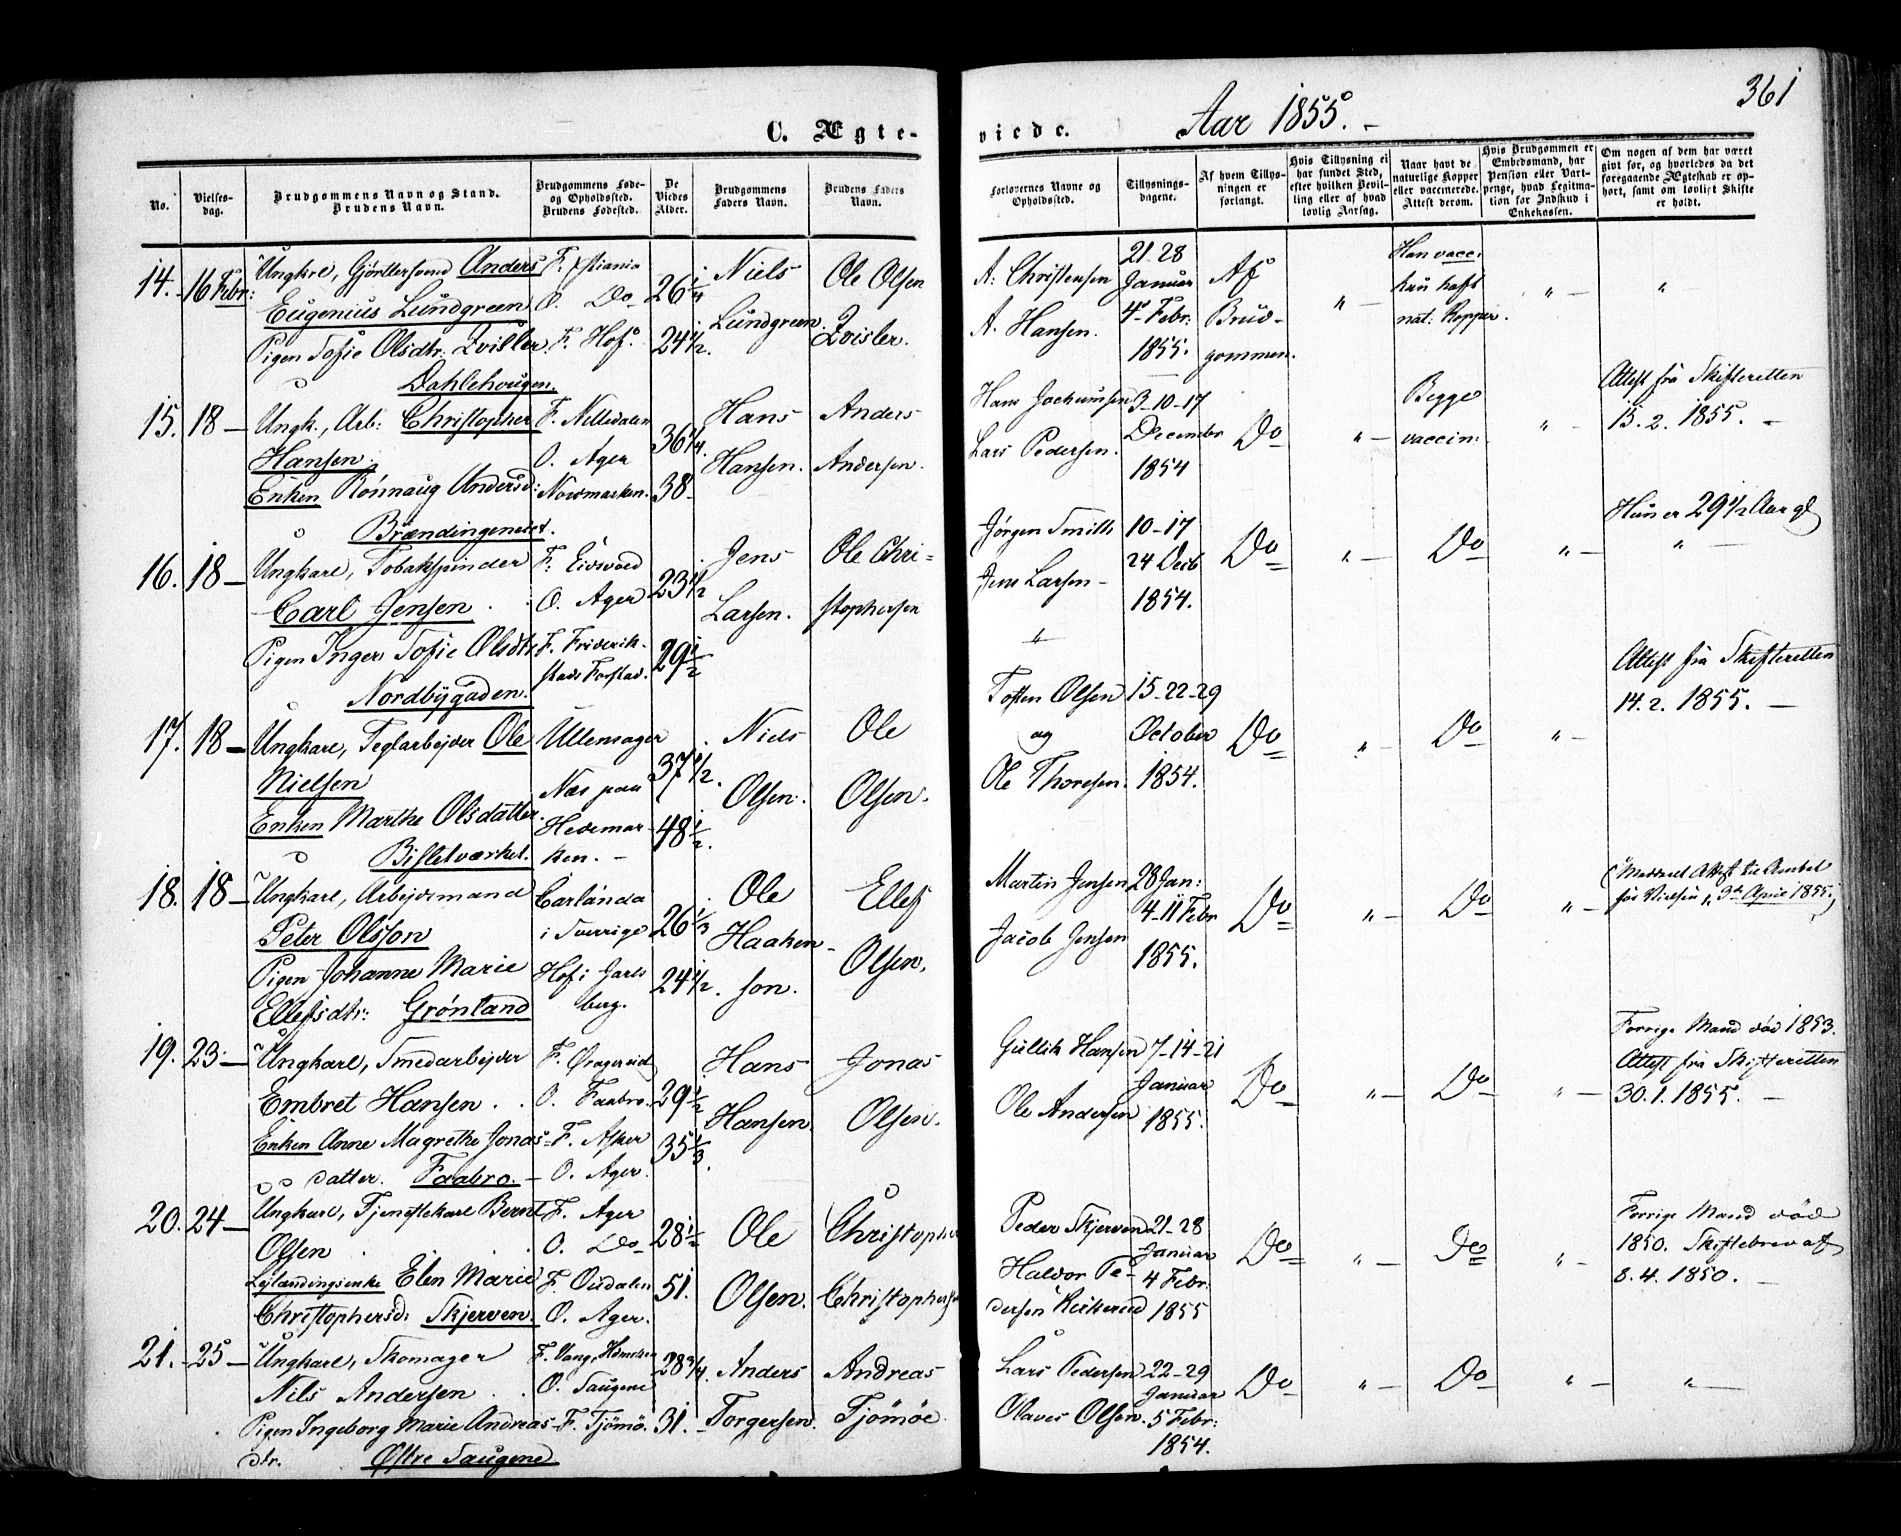 361
Aar 1855. –
C. Ægte- viede.
No.
Vielses-dag.
Brudgommens Navn og Stand.
Brudens Navn.
Brudgommens Føde- og Opholdssted.
Brudens Fødested.
De Viedes Alder.
Brudgommens Faders Navn.
Brudens Faders Navn.
Forlovernes Navne og Opholdssted.
Tillysnings-dagene.
Af hvem Tillysningen er forlangt.
Hvis Tillysning ei har fundet Sted, efter hvilken Bevilling eller af hvad lovlig Aarsag.
Naar havt de naturlige Kopper eller vaccinerede. Attest derom.
Hvis Brudgommen er Embedsmand, har Pension eller Vartpenge, hvad Legitimation for Indskud i Enkekassen.
Om nogen af dem har været gift før, og hvorledes da det foregaaende Ægteskab er ophørt, samt om lovligt Skifte er holdt.
14. 16 Febr:
Ungkre, Gjørtlersvend Anders
Eugenius Lundgreen
Pigen Sofie Olsdtr: Qvisler
Dahlehougen.
F. Xstiania
O. Do
F. Hof.
26 1/4
24 1/2.
Niels Lundgreen.
Ole Olsen Qvisler.
A. Christensen
A. Hansen.
21. 28 Januar
4. Febr: 1855.
Af Brudgommen.
" –
Han vacc.
hun haft
nat: Kopper.
" –
" –
15. 18 –
Ungk., Arb: Christopher
Hansen.
Enken Rønnaug Andersd:
Brændingeneiet.
F. Nittedalen
O. Ager
Nordmarken.
36 1/4.
38 –
Hans Hansen.
Anders Andersen.
Hans Jochumsen
Lars Pedersen.
3–10–17 December 1854
Do
" –
Begge vaccin:
" –
Attest fra Skifteretten
15. 2. 1855. –
16. 18 –
Ungkarl, Tobakspinder
Carl Jensen
Pigen Inger Sofie Olsdtr
Nordbygaden.
F: Eidsvold
O. Ager
F. Friderikstads Forstad.
23 1/2
29 1/2
Jens Larsen.
Ole Christophersen
Jørgen Smith
Jens Larsen –
"
10–17 24 Decb 1854.
Do
" –
Do
" –
Hun er 29 1/2 Aar gl
" –
17. 18 –
Ungkarl, Teglarbejder Ole
Nielsen
Enken Marthe Olsdatter
Bisletværket.
Ullensager
Næs paa Hedemarken. –
37 1/2.
48 1/2.
Niels Olsen.
Ole Olsen.
Tosten Olsen
og
Ole Thoresen.
15–22–29 October 1854.
Do
" –
Do
" –
Attest fra Skifteretten
14. 2. 1855. –
18. 18 –
Ungkarl, Arbejdsmand
Peter Olsson
Pigen Johanne Marie
Ellefsdtr: Grønland
Carlanda i Sverrige
Hof i Jarlsberg.
26 1/3
24 1/2.
Ole Haakenson.
Ellef Olsen.
Martin Jensen
Jacob Jensen
28 Jan: 4–11 Febr 1855.
Do
" –
Do
" –
19. 23 –
Ungkarl, Smedarbejder
Embret Hansen
Enken Anne Magrethe Jonas-
datter. Faabro. –
O. Faabro.
F. Asker
O. Ager.
29 1/2
35 1/3.
Hans Hansen
Jonas Olsen.
Gullik Hansen
Ole Andersen
7–14–21 Januar 1855.
Do
" –
Do
" –
Forrige Mand død 1853.
Attest fra Skifteretten
30. 1. 1855. –
20. 24 –
Ungkarl, Tjenestekarl Bernt
Olsen
Elen Marie
Christophersd: Skjerven.
F. Ager
O. Do
F. Oudalen
O. Ager.
28 1/2
51.
Ole Olsen.
Christopher Christophers
Peder Skjerven
Halvor Pedersen
21–28 Januar 4 Febr. 1855
Do
" –
Do
" –
Forrige Mand død
1850. Skiftebrev af
8. 4. 1850. –
21. 25 –
Ungkarl, Skomager
Nils Andersen
Pigen Ingeborg Marie Andreas-
dtr. Østre Saugene
O. Saugene
F. Tjømø.
28 3/4.
31. –
Anders Torgersen.
Andreas Tjømøe
Lars Pedersen
Olaves Olsen.
22–29 Januar 5 Febr: 1854.
Do
" –
Do
" –
" –